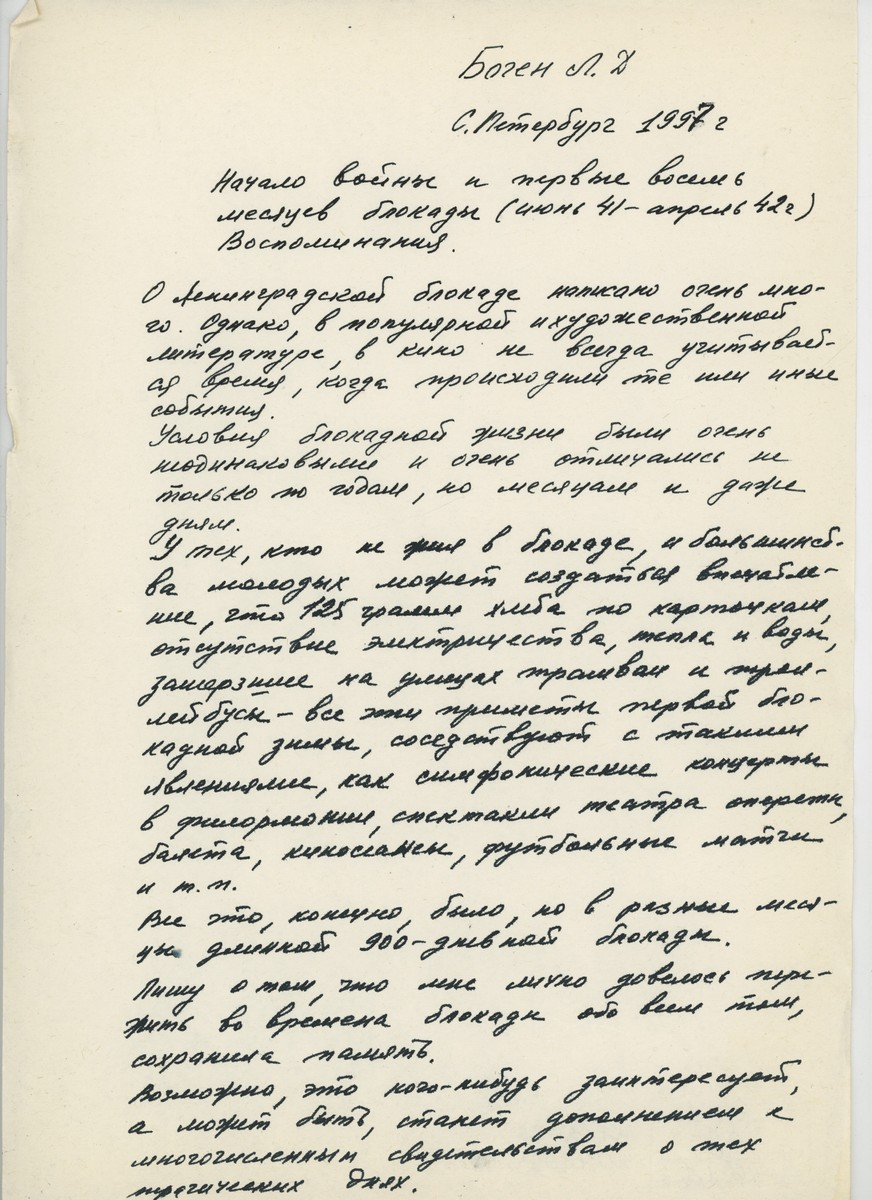 Боген Л. Д
С. Петербург 1997 г
Начало войны и первые восемь
месяцев блокады (июнь 41 – апрель 42 г)
Воспоминания.
О Ленинградской блокаде написано очень мно-
го. Однако, в популярной и художественной
литературе, в кино не всегда учитывает-
ся время, когда происходили те или иные
события.
Условия блокадной жизни были очень
неодинаковыми и очень отличались не
только по годам, но месяцам и даже
дням.
У тех, кто не жил в блокаде, и большинст-
ва молодых может создаться впечатле-
ние, что 125 грамм хлеба по карточкам,
отсутствие электричества, тепла и воды,
замерзшие на улицах трамваи и трол-
лейбусы – все эти приметы первой бло-
кадной зимы, соседствуют с такими
явлениями, как симфонические концерты
в филармонии, спектакли театра оперетты,
балета, киносеансы, футбольные матчи
и т. п.
Все это, конечно, было, но в разные меся-
цы длинной 900-дневной блокады.
Пишу о том, что мне лично довелось пере-
жить во времена блокады обо всем том,
сохранила память.
Возможно, это кого-нибудь заинтересует,
а может быть, станет дополнением к
многочисленным свидетельствам о тех
трагических днях.